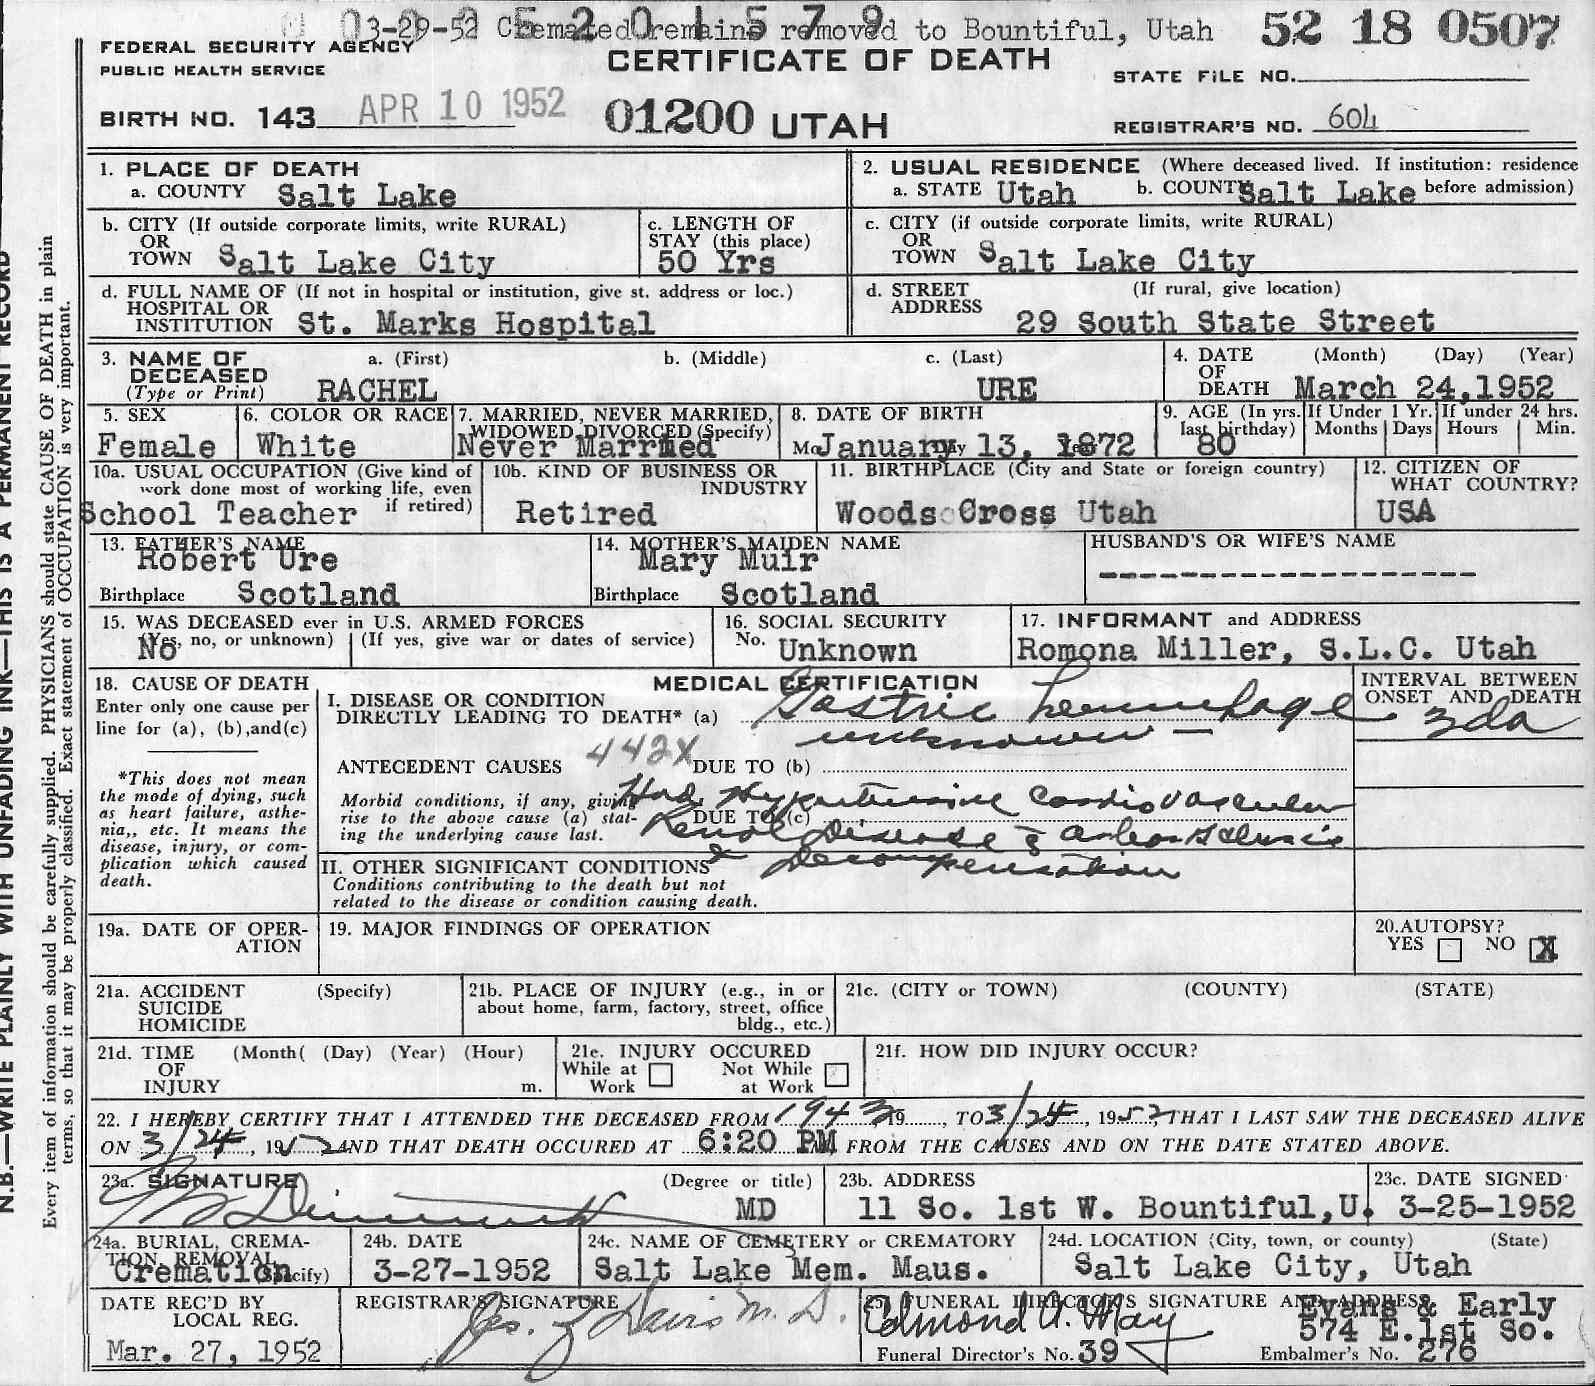 03-29-52 Cremated Cremains removed to Bountiful, Utah 52 18 0507
FEDERAL SECURITY AGENCY
PUBLIC HEALTH SERVICE
CERTIFICATE OF DEATH
STATE FILE NO.
BIRTH NO. 143 APR 10 1952 01200 UTAH
REGISTRAR'S NO. 604
1. PLACE OF DEATH
a. COUNTY Salt Lake
2. USUAL RESIDENCE (Where deceased lived. If institution: residence
a. STATE Utah b. COUNTY Salt Lake before admission)
b. CITY (If outside corporate limits, write RURAL)
OR
TOWN Salt Lake City
c. LENGTH OF
STAY (this place)
50 Yrs
c. CITY (if outside corporate limits, write RURAL)
OR
TOWN Salt Lake City
d. FULL NAME OF (If not in hospital or institution, give st. address or loc.)
HOSPITAL OR
INSTITUTION St. Marks Hospital
d. STREET (If rural, give location)
ADDRESS
29 South State Street
3. NAME OF a. (First) b. (Middle) c. (Last)
DECEASED
(Type or Print) RACHEL URE
4. DATE (Month) (Day) (Year)
OF
DEATH March 24,1952
5. SEX
Female
6. COLOR OR RACE
White
7. MARRIED, NEVER MARRIED,
WIDOWED, DIVORCED (Specify)
Never Married
8. DATE OF BIRTH
January 13, 1872
9. AGE (In yrs. last birthday)
80
If Under 1 Yr.
Months Days
If under 24 hrs.
Hours Min.
10a. USUAL OCCUPATION (Give kind of
work done most of working life, even
if retired)
School Teacher
10b. KIND OF BUSINESS OR
INDUSTRY
Retired
11. BIRTHPLACE (City and State or foreign country)
Woods Cross Utah
12. CITIZEN OF
WHAT COUNTRY?
USA
13. FATHER'S NAME
Robert Ure
Birthplace Scotland
14. MOTHER'S MAIDEN NAME
Mary Muir
Birthplace Scotland
HUSBAND'S OR WIFE'S NAME
--------------------
15. WAS DECEASED ever in U.S. ARMED FORCES
(Yes, no, or unknown) (If yes, give war or dates of service)
No
16. SOCIAL SECURITY
No. Unknown
17. INFORMANT and ADDRESS
Romona Miller, S.L.C. Utah
18. CAUSE OF DEATH
Enter only one cause per
line for (a), (b),and(c)
*This does not mean
the mode of dying, such
as heart failure, asthe-
nia,, etc. It means the
disease, injury, or com-
plication which caused
death.
MEDICAL CERTIFICATION
I. DISEASE OR CONDITION
DIRECTLY LEADING TO DEATH* (a) Gastric hemorrhage
unknown —
442X
ANTECEDENT CAUSES DUE TO (b)
Morbid conditions, if any, giving
rise to the above cause (a) stat-
ing the underlying cause last.
DUE TO (c)
Had Hypertensive Cardiovascular
Renal Disease c̄ Arteriosclerosis
& Decompensation
II. OTHER SIGNIFICANT CONDITIONS
Conditions contributing to the death but not
related to the disease or condition causing death.
INTERVAL BETWEEN
ONSET AND DEATH
3da
19a. DATE OF OPER-
ATION
19. MAJOR FINDINGS OF OPERATION
20.AUTOPSY?
YES NO X
21a. ACCIDENT (Specify)
SUICIDE
HOMICIDE
21b. PLACE OF INJURY (e.g., in or
about home, farm, factory, street, office
bldg., etc.)
21c. (CITY or TOWN) (COUNTY) (STATE)
21d. TIME (Month( (Day) (Year) (Hour)
OF
INJURY m.
21e. INJURY OCCURED
While at Work
Not While at Work
21f. HOW DID INJURY OCCUR?
22. I HEREBY CERTIFY THAT I ATTENDED THE DECEASED FROM 1943 19......, TO 3/24, 1952, THAT I LAST SAW THE DECEASED ALIVE
ON 3/24, 1952 AND THAT DEATH OCCURED AT 6:20 PM, FROM THE CAUSES AND ON THE DATE STATED ABOVE.
23a. SIGNATURE (Degree or title)
MD
23b. ADDRESS
11 So. 1st W. Bountiful,U.
23c. DATE SIGNED
3-25-1952
24a. BURIAL, CREMA-
TION, REMOVAL
(Specify)
Cremation
24b. DATE
3-27-1952
24c. NAME OF CEMETERY or CREMATORY
Salt Lake Mem. Maus.
24d. LOCATION (City, town, or county) (State)
Salt Lake City, Utah
DATE REC'D BY
LOCAL REG.
Mar. 27, 1952
REGISTRAR'S SIGNATURE
Davis M.D.
25. FUNERAL DIRECTOR'S SIGNATURE AND ADDRESS
Edmond A. May
Evans & Early
574 E.1st So.
Funeral Director's No. 39
Embalmer's No. 276
N.B.—WRITE PLAINLY WITH UNFADING INK—THIS IS A PERMANENT RECORD
Every item of information should be carefully supplied. PHYSICIANS should state CAUSE OF DEATH in plain
terms, so that it may be properly classified. Exact statement of OCCUPATION is very important.